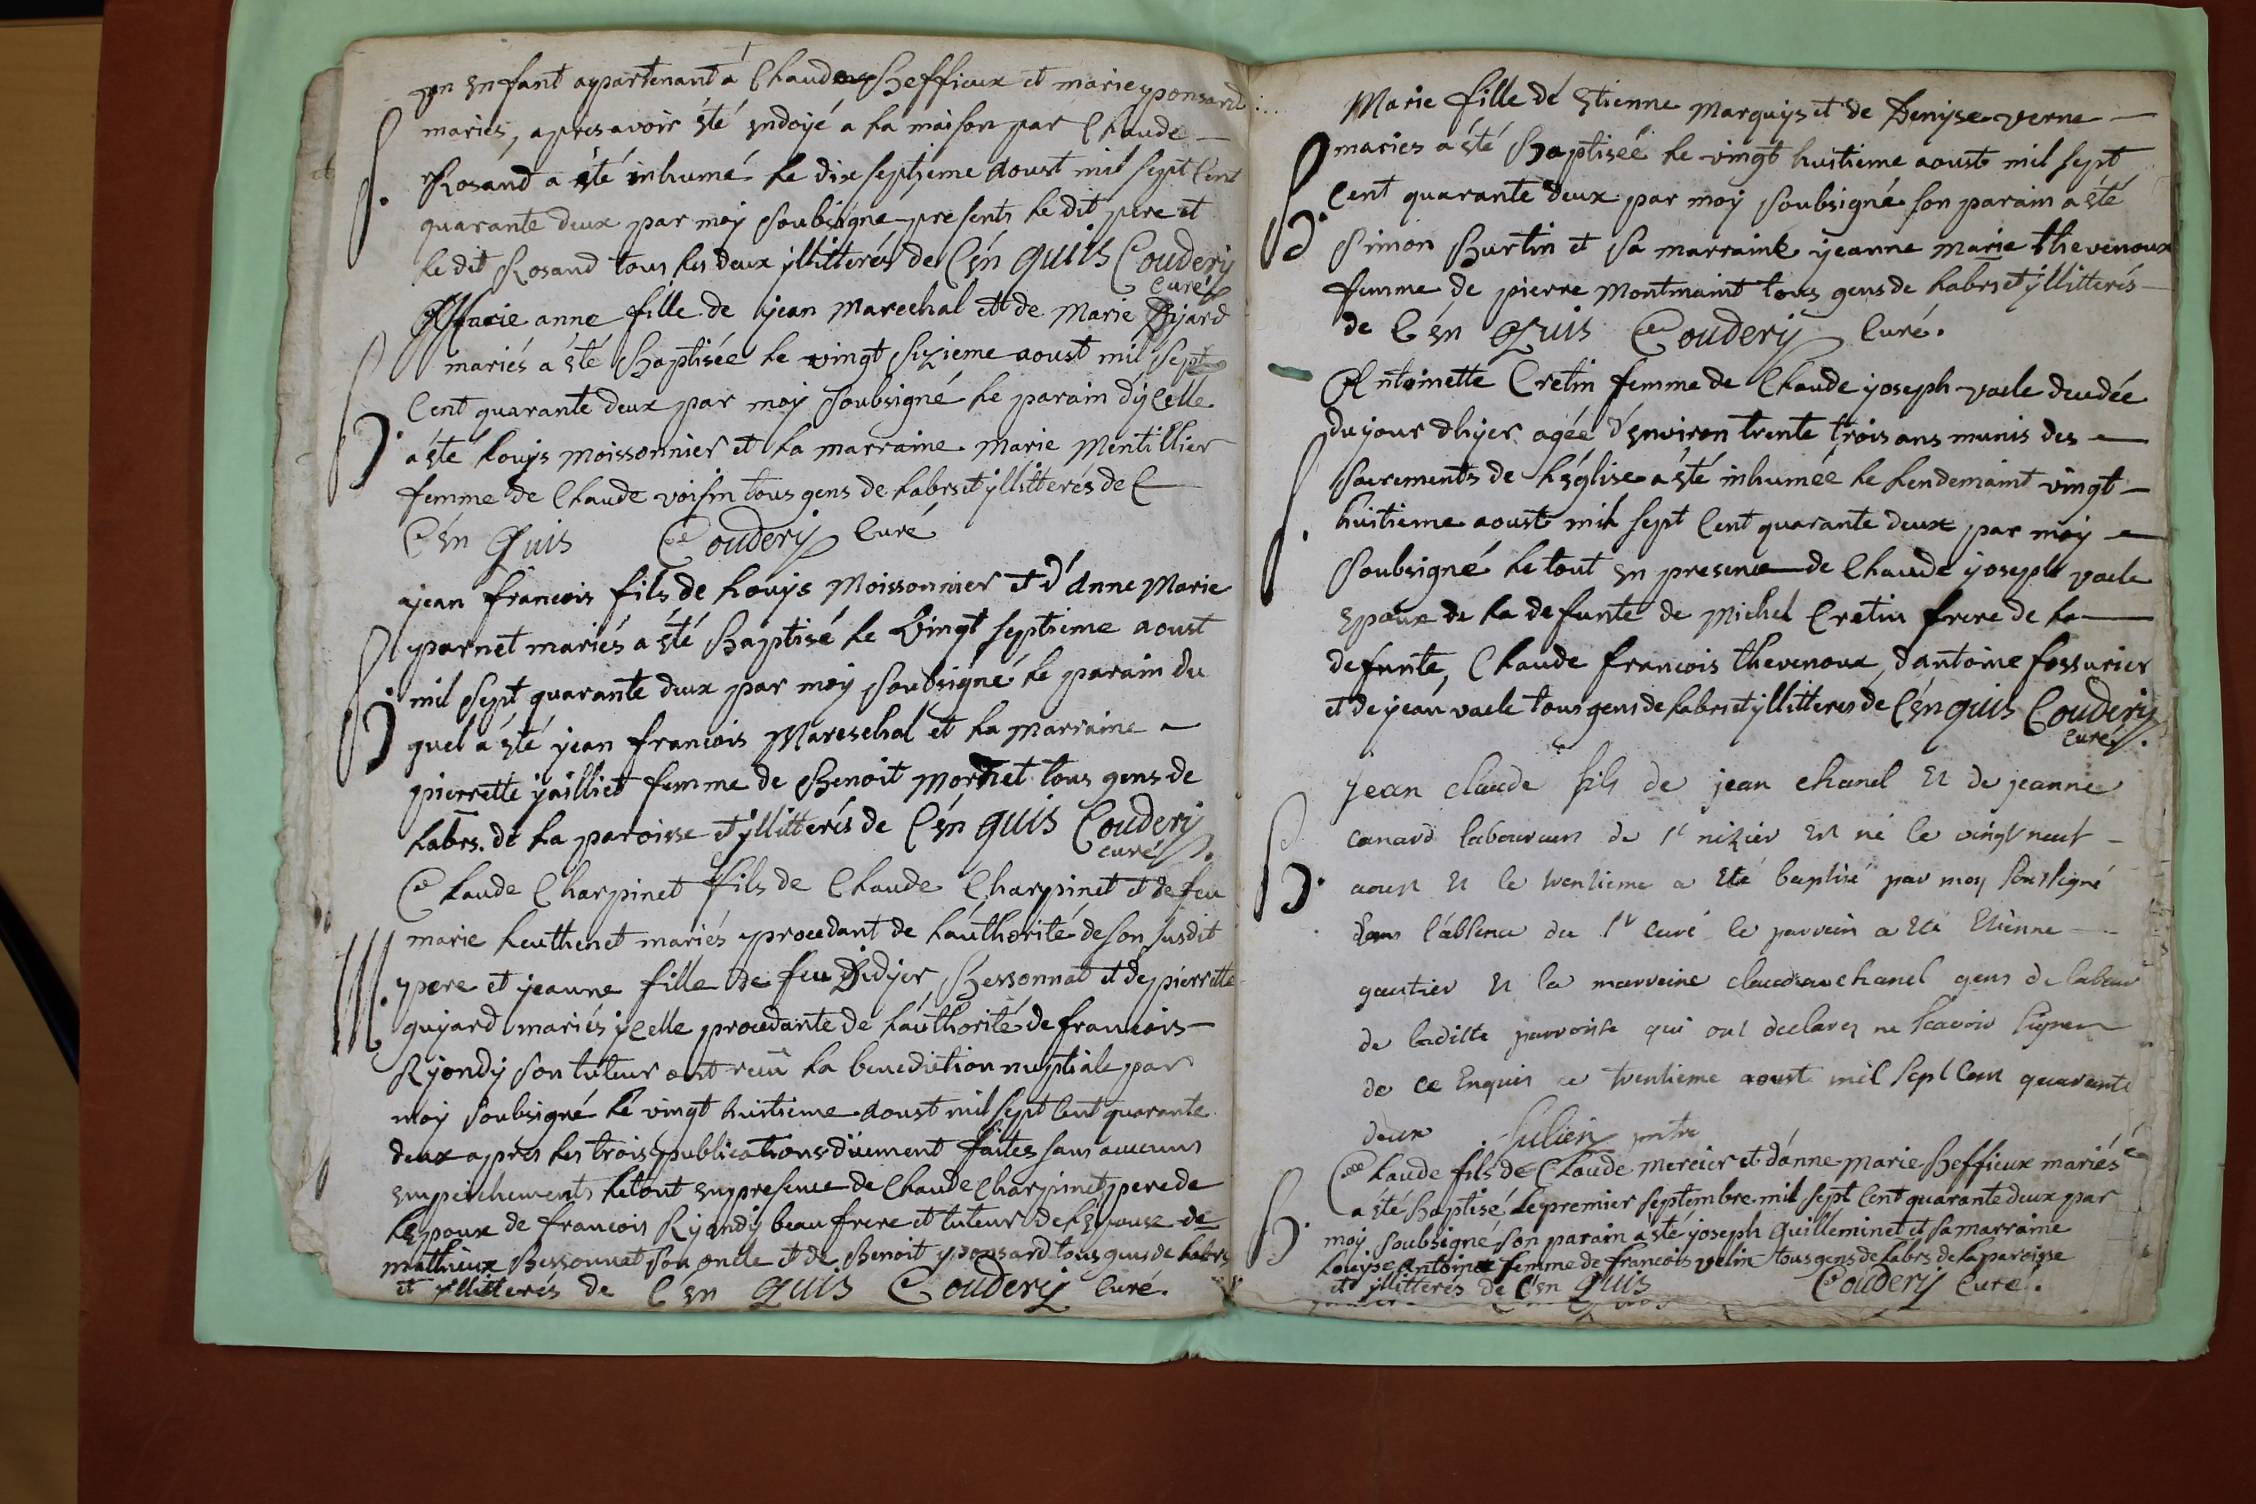 un enfant appartenant á Claude Beffieux et marie ponsard
mariés, apres avoir été endoyé a la maison par Claude
S. Rosand a été inhumé le dix septieme aoust mil sept Cent
quarante deux par moy soubsigné presents le dit pere et
le dit Rosand tous les deux yllitterés de C en quis Coudery
Curé
Marie anne fille de jean Marechal et de Marie
mariés a été Baptisée le vingt sizieme aoust mil sept
Cent quarante deux par moy soubsigné le parain dycelle
B. a été Louys Moissonnier et la marraine Marie Mentillier
femme de Claude voisin tous gens de labrs et yllitterés de C
C en quis Coudery Curé
jean francois fils de Louys Moissonnier et d'Anne Marie
parnet mariés a été Baptisé le vingt septieme aoust
B. mil sept quarante deux par moy soubsigné le parain du
quel a été jean francois Mareschal et la marraine
pierrette jailliet femme de Benoit Mornet tous gens de
labrs. de la paroisse et yllitterés de C én quis Coudery
curé
Claude Charpinet fils de Claude Charpinet et de feu
marie leuthenet mariés procedant de l'authorité de son susdit
M. pere et jeanne fille de feu Didjer Bessonnat et de pierrette
guyard mariés ycelle procedante de l'authorité de francois
Ryondy son tuteur ont reçu la benediction nuptiale par
moy soubsigné le vingt huitieme aoust mil sept cent quarante
deux apres les trois publications düement faites sans aucuns
empeschements le tout en presence de Claude Charpinet pere de
lepoux de francois Ryondy beau frere et tuteur de lepouse de
mathieux Bessonnat son oncle et de Benoit ponsard tous gens de labrs
et yllitterés de C én quis Coudery Curé.
Marie fille de Etienne Marquys et de Denyse verne
mariés a été Baptisée le vingt huitieme aoust mil sept
B. Cent quarante deux par moy soubsigné son parain a été
Simon Burtin et sa marraine jeanne marie thevenoux
femme de pierre Montmaint tous gens de labrs et yllitterés
de C én quis Coudery Curé.
Antoinette Cretin femme de Claude joseph vacle decedée
du jour dhyer agée d'environ trente trois ans munis des
sacrements de l'église a été inhumée le lendemaint vingt
S. huitieme aoust mil sept Cent quarante deux par moy
soubsigné le tout en presence de Claude joseph vacle
epoux de la defunte de Michel Cretin frere de la
defunte, Claude francois thevenoux, d'antoine fossurier
et de jean vacle tous gens de labrs et yllitterés de C én quis Coudery
curé.
Jean claude fils de jean chanel et de jeanne
canard laboureurs de st nizier est né le vingt neuf
B. aoust et le trentieme a eté baptisé par moy soussigné
dans l'absence du sr curé le parrein a eté Etienne
gautier et la marreine claudine chanel gens de labeur
de laditte parroisse qui ont declarez ne scavoir signer
de ce Enquis ce trentieme aoust mil sept Cent quarante
deux Julien prtre
Claude fils de Claude Mercier et d'anne Marie Beffieux mariés
a été Baptisé le premier septembre mil sept Cent quarante deux par
B. moy soubsigné son parain a été joseph Quilleminet et sa marraine
Louyse Antoine femme de francois velin tous gens de labrs de la paroisse
et yllitterés de C én quis Coudery Curé.